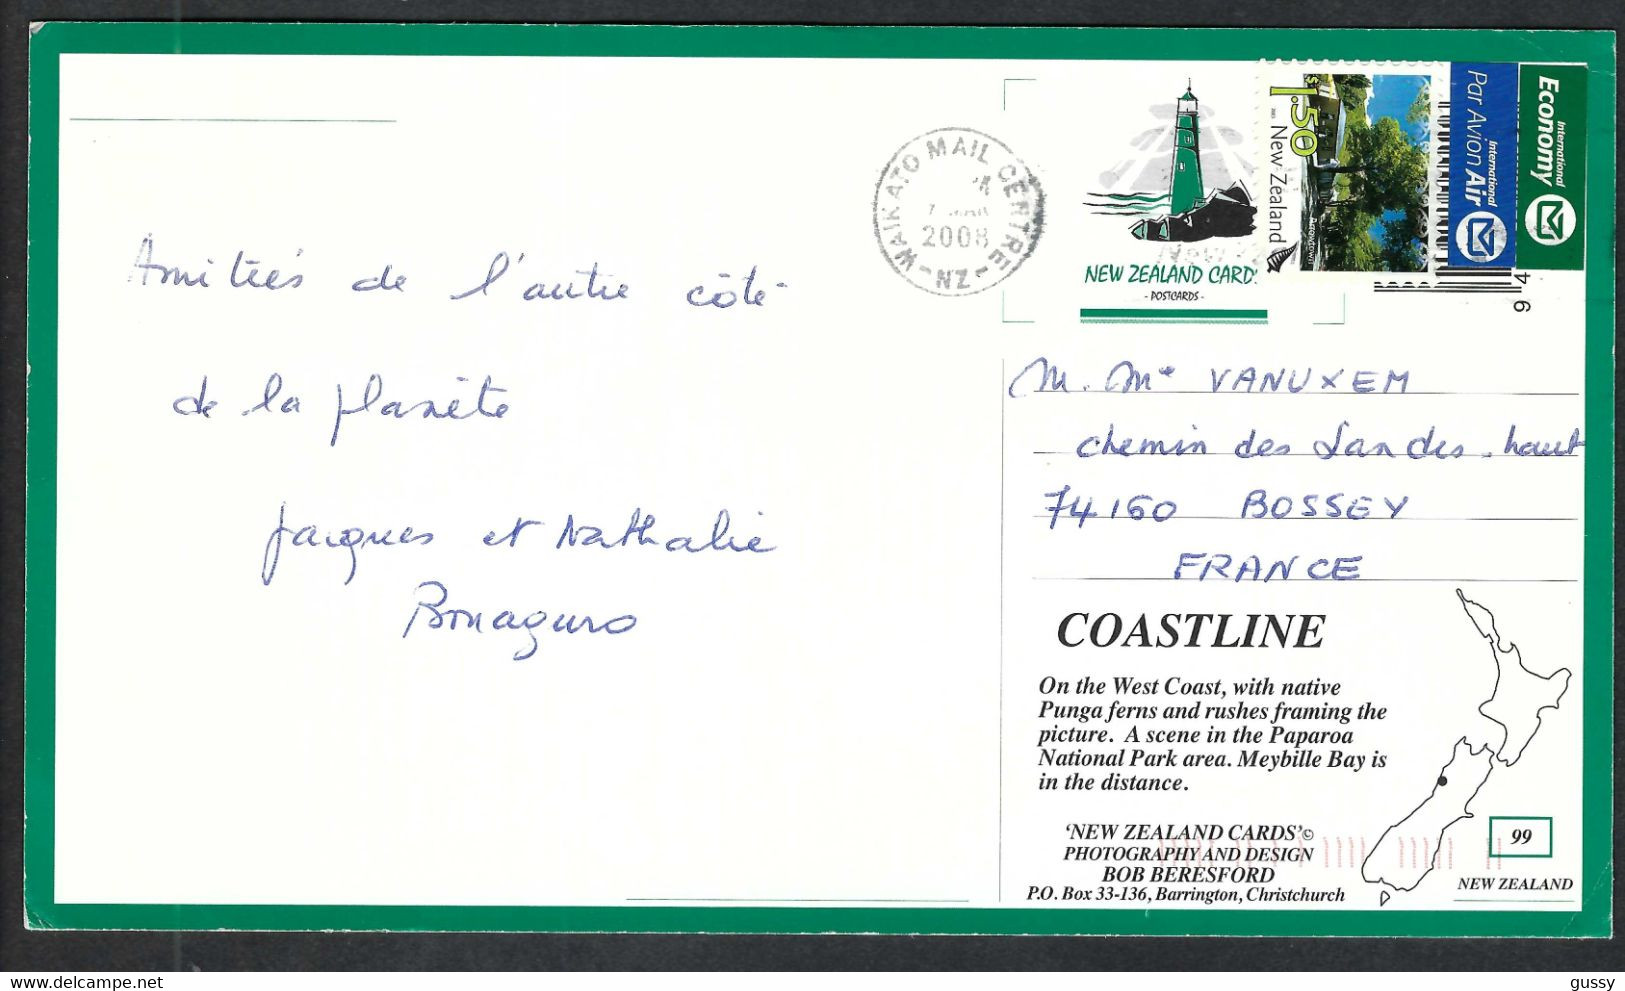 Amitiés de l'autre côté
de la planète
Jacques et Nathalie
Bonaguro
WAIKATO MAIL CENTRE
2008
NZ
NEW ZEALAND CARDS
- POSTCARDS -
$1.50
New Zealand
Arrowtown
International
Air
Par Avion
International
Economy
4 6
M. Me VANUXEM
chemin des Landes-haut
74160 BOSSEY
FRANCE
COASTLINE
On the West Coast, with native
Punga ferns and rushes framing the
picture. A scene in the Paparoa
National Park area. Meybille Bay is
in the distance.
'NEW ZEALAND CARDS'©
PHOTOGRAPHY AND DESIGN
BOB BERESFORD
P.O. Box 33-136, Barrington, Christchurch
99
NEW ZEALAND
gussy